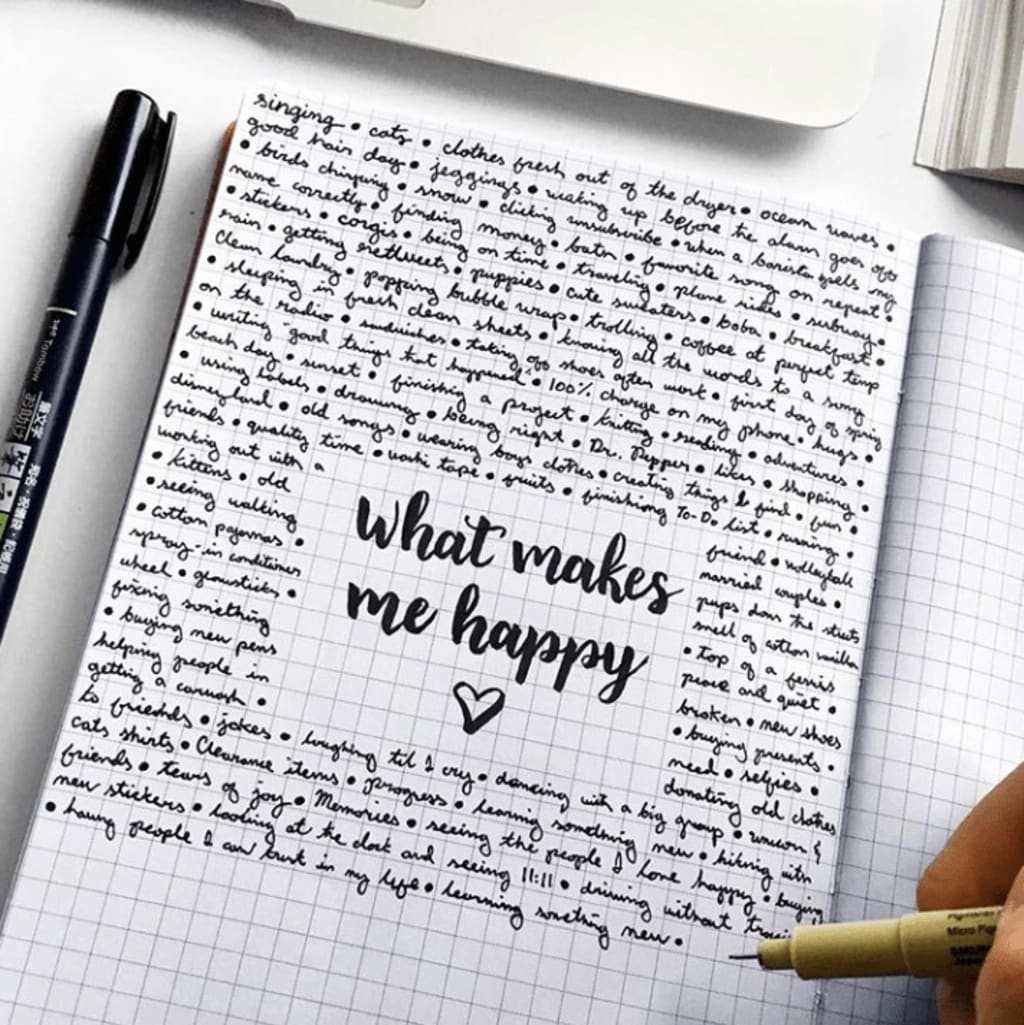 singing • cats • clothes fresh out of the dryer • ocean waves •
good hair day • jeggings • waking up before the alarm goes off
• birds chirping • snow • clicking unsubscribe • when a barista spells my
name correctly • finding money • bath • favorite song on repeat •
• stickers • corgis • being on time • traveling • plane rides • subway •
rain • getting retweets • puppies • cute sweaters • boba • breakfast •
Clean laundry • popping bubble wrap • trolling • coffee at perfect temp
• sleeping in fresh clean sheets • knowing all the words to a song
on the radio • sandwiches • taking off shoes after work • first day of spring
• writing "good things that happened" • 100% charge on my phone • hugs •
beach day • sunset • finishing a project • knitting • reading • adventures •
• using labels • drawing • being right • Dr. Pepper • likes • shopping •
disneyland • old songs • wearing boys clothes • creating things I find • fun •
friends • quality time • washi tape • fruits • finishiong To-Do list • running •
working out with a friend • volleyball
• kittens • old married couples •
• seeing walking pups down the streets
• cotton pajamas • smell of cotton vanilla
spray-in conditioner • Top of a ferris
wheel • glowsticks • peace and quiet •
fixing something broken • new shoes
• buying new pens • buying presents •
helping people in need • selfies •
getting a carwash • donating old clothes
what makes
me happy
to friends • jokes • laughing til I cry • dancing with a big group • unicorn &
cats shirts • Clearance items • progress • learning something new • hiking with
friends • tears of joy • Memories • seeing the people I love happy • buying
new stickers • looking at the clock and seeing 11:11 • driving without
• having people I can trust in my life • learning something new •
Tombow
Micro